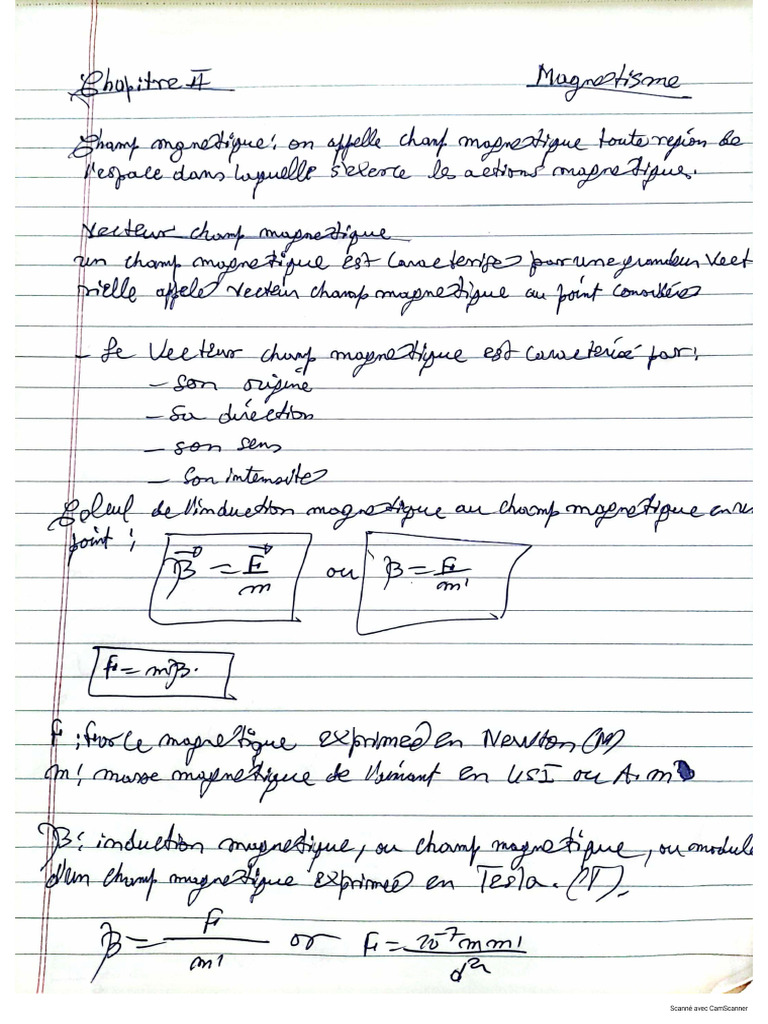 Chapitre II Magnetisme
Champ mgnetique: on appelle champ magnetique toute region de
l'espace dans laquelle s'exerce les actions magnetique.
Vecteur champ magnetique
un champ magnetique est caracterisé par une grandeur vect
orielle appelé vecteur champ magnetique au point considéré
- Le Vecteur champ magnetique est caracterisé par:
- son origine
- Sa direction
- son sens
- Son intensité
Calcul de l'induction magnetique au champ magnetique en un
point:
B⃗ = F⃗/m ou B = F/m'
F = m'B.
F: force magnetique exprimeé en Newton (N)
m': masse magnetique de l'aimant en USI ou A.m
B: induction magnetique, ou champ magnetique, ou module
d'un champ magnetique exprimeé en Tesla. (T).
B = F/m' or F = 10⁻⁷mm'/d²
Scanné avec CamScanner